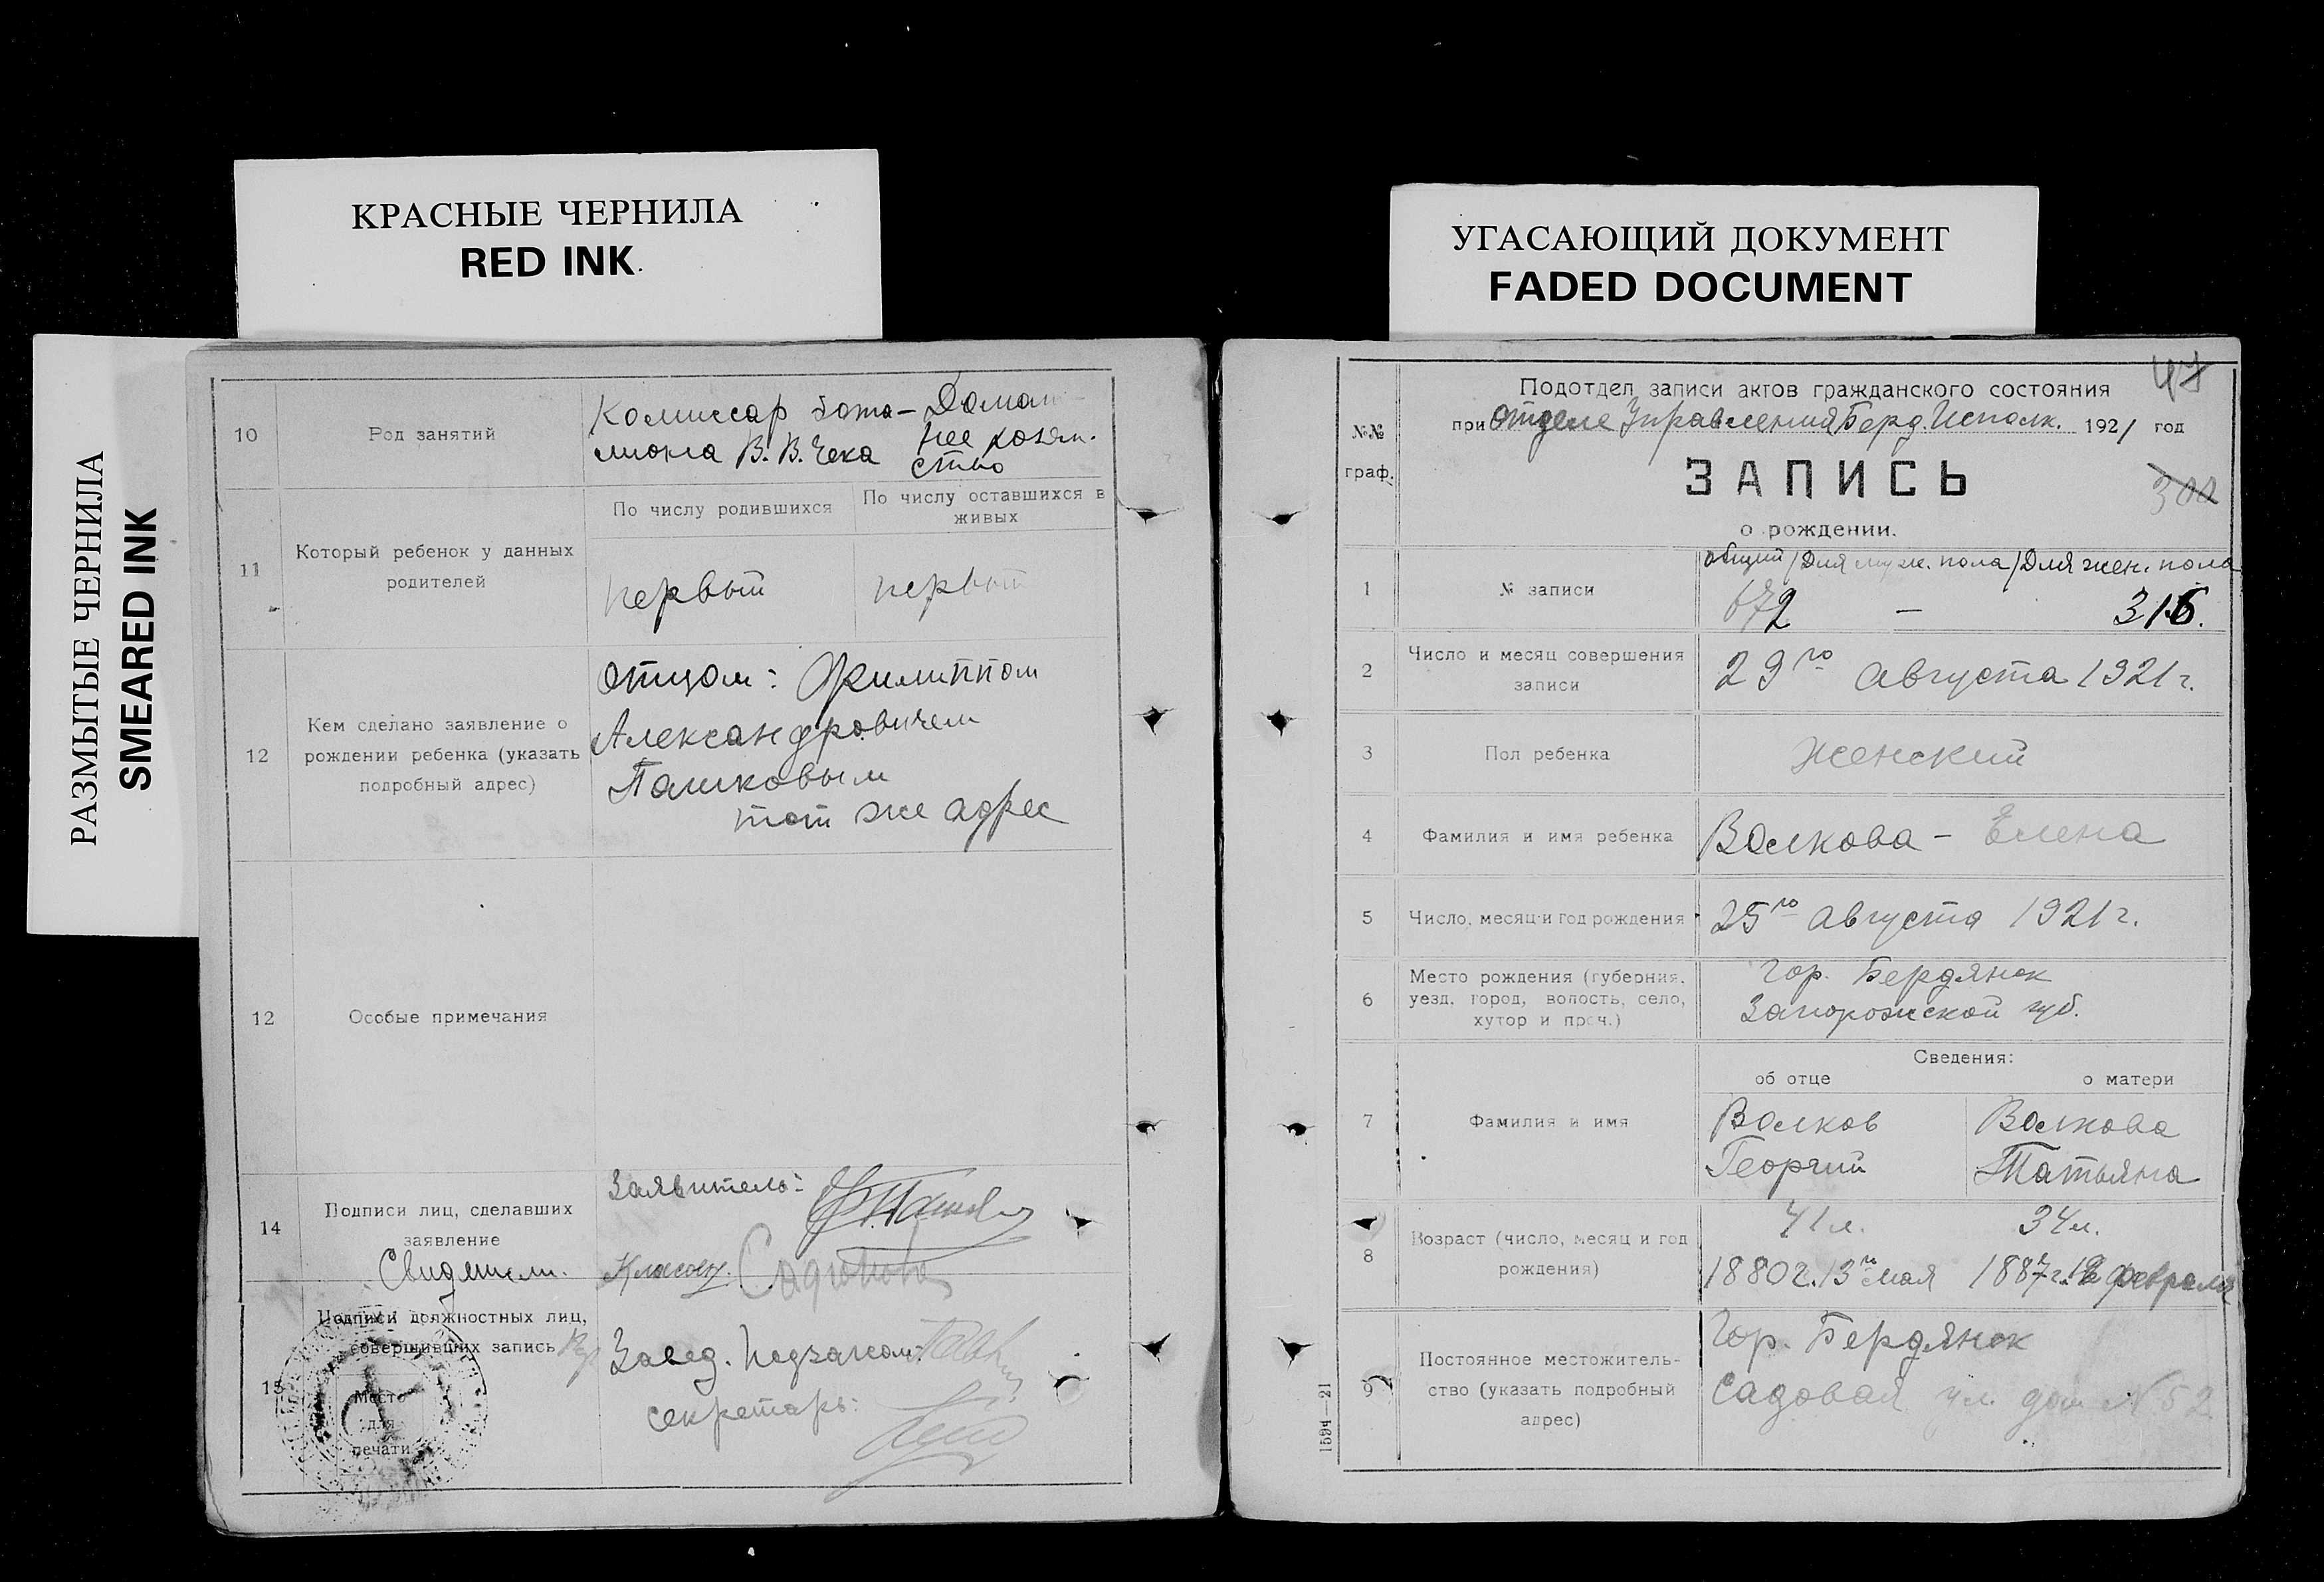 КРАСНЫЕ ЧЕРНИЛА
RED INK
УГАСАЮЩИЙ ДОКУМЕНТ
FADED DOCUMENT
РАЗМЫТЫЕ ЧЕРНИЛА
SMEARED INK
10
Род занятий
Комиссар бата- Домаш-
лиона В. В. Чека нее хозяй-
ство
11
Который ребенок у данных
родителей
По числу родившихся
По числу оставшихся в
живых
первый
первый
12
Кем сделано заявление о
рождении ребенка (указать
подробный адрес)
Отцом: Филиппом
Александровичем
Пашковым
тот же адрес
12
Особые примечания
14
Подписи лиц, сделавших
заявление
Свидетели.
Заявитель:
15
Подписи должностных лиц,
совершивших запись
Место
для
печати
Завед. Подзагсом:
секретарь:
47
№№
граф.
Подотдел записи актов гражданского состояния
при Отделе Управления Берд. Исполк. 1921 год
ЗАПИСЬ
300
о рождении.
1
№ записи
общий / Для муж. пола / Для жен. пола
672 — 316.
2
Число и месяц совершения
записи
29го Августа 1921 г.
3
Пол ребенка
Женский
4
Фамилия и имя ребенка
Волкова - Елена
5
Число, месяц и год рождения
25го Августа 1921 г.
6
Место рождения (губерния,
уезд, город, волость, село,
хутор и проч.)
Гор. Бердянск
Запорожской губ.
Сведения:
об отце
о матери
7
Фамилия и имя
Волков
Георгий
Волкова
Татьяна
8
Возраст (число, месяц и год
рождения)
41 л. 34 л.
1880 г. 13го мая 1887 г. 12 февраля
9
Постоянное местожитель-
ство (указать подробный
адрес)
Гор. Бердянск
Садовая ул. дом № 52
1594—21